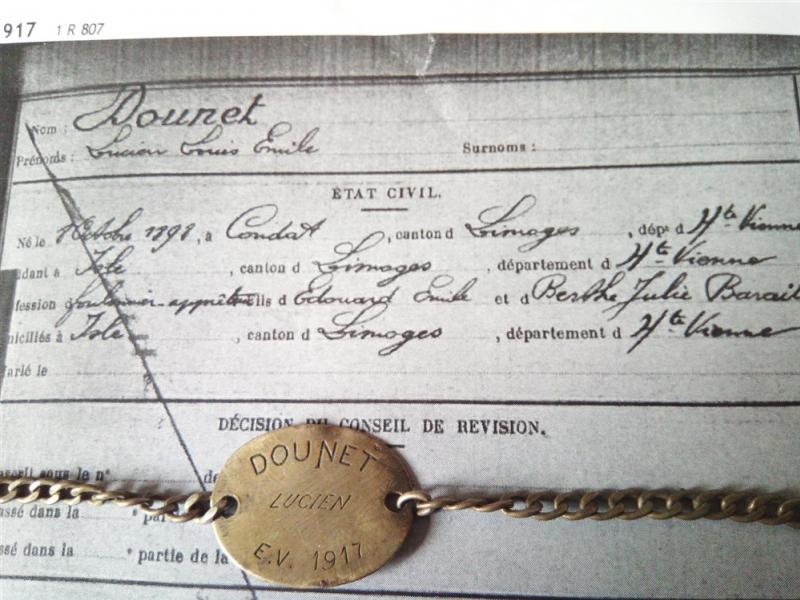 917 1 R 807
Nom : Dounet
Prénoms : Lucien Louis Emile Surnoms :
ÉTAT CIVIL.
Né le Octobre 1898, à Condat, canton d Limoges, dépt d Hte Vienne
dant à Isle, canton d Limoges, département d Hte Vienne
fession ils d Edouard Emile et d Berthe Julie Barail
miciliés à Isle, canton d Limoges, département d Hte Vienne
arié le
DÉCISION DU CONSEIL DE REVISION.
nscrit sous le n° de
assé dans la par
ssé dans la partie de la
DOUNET
LUCIEN
E.V. 1917